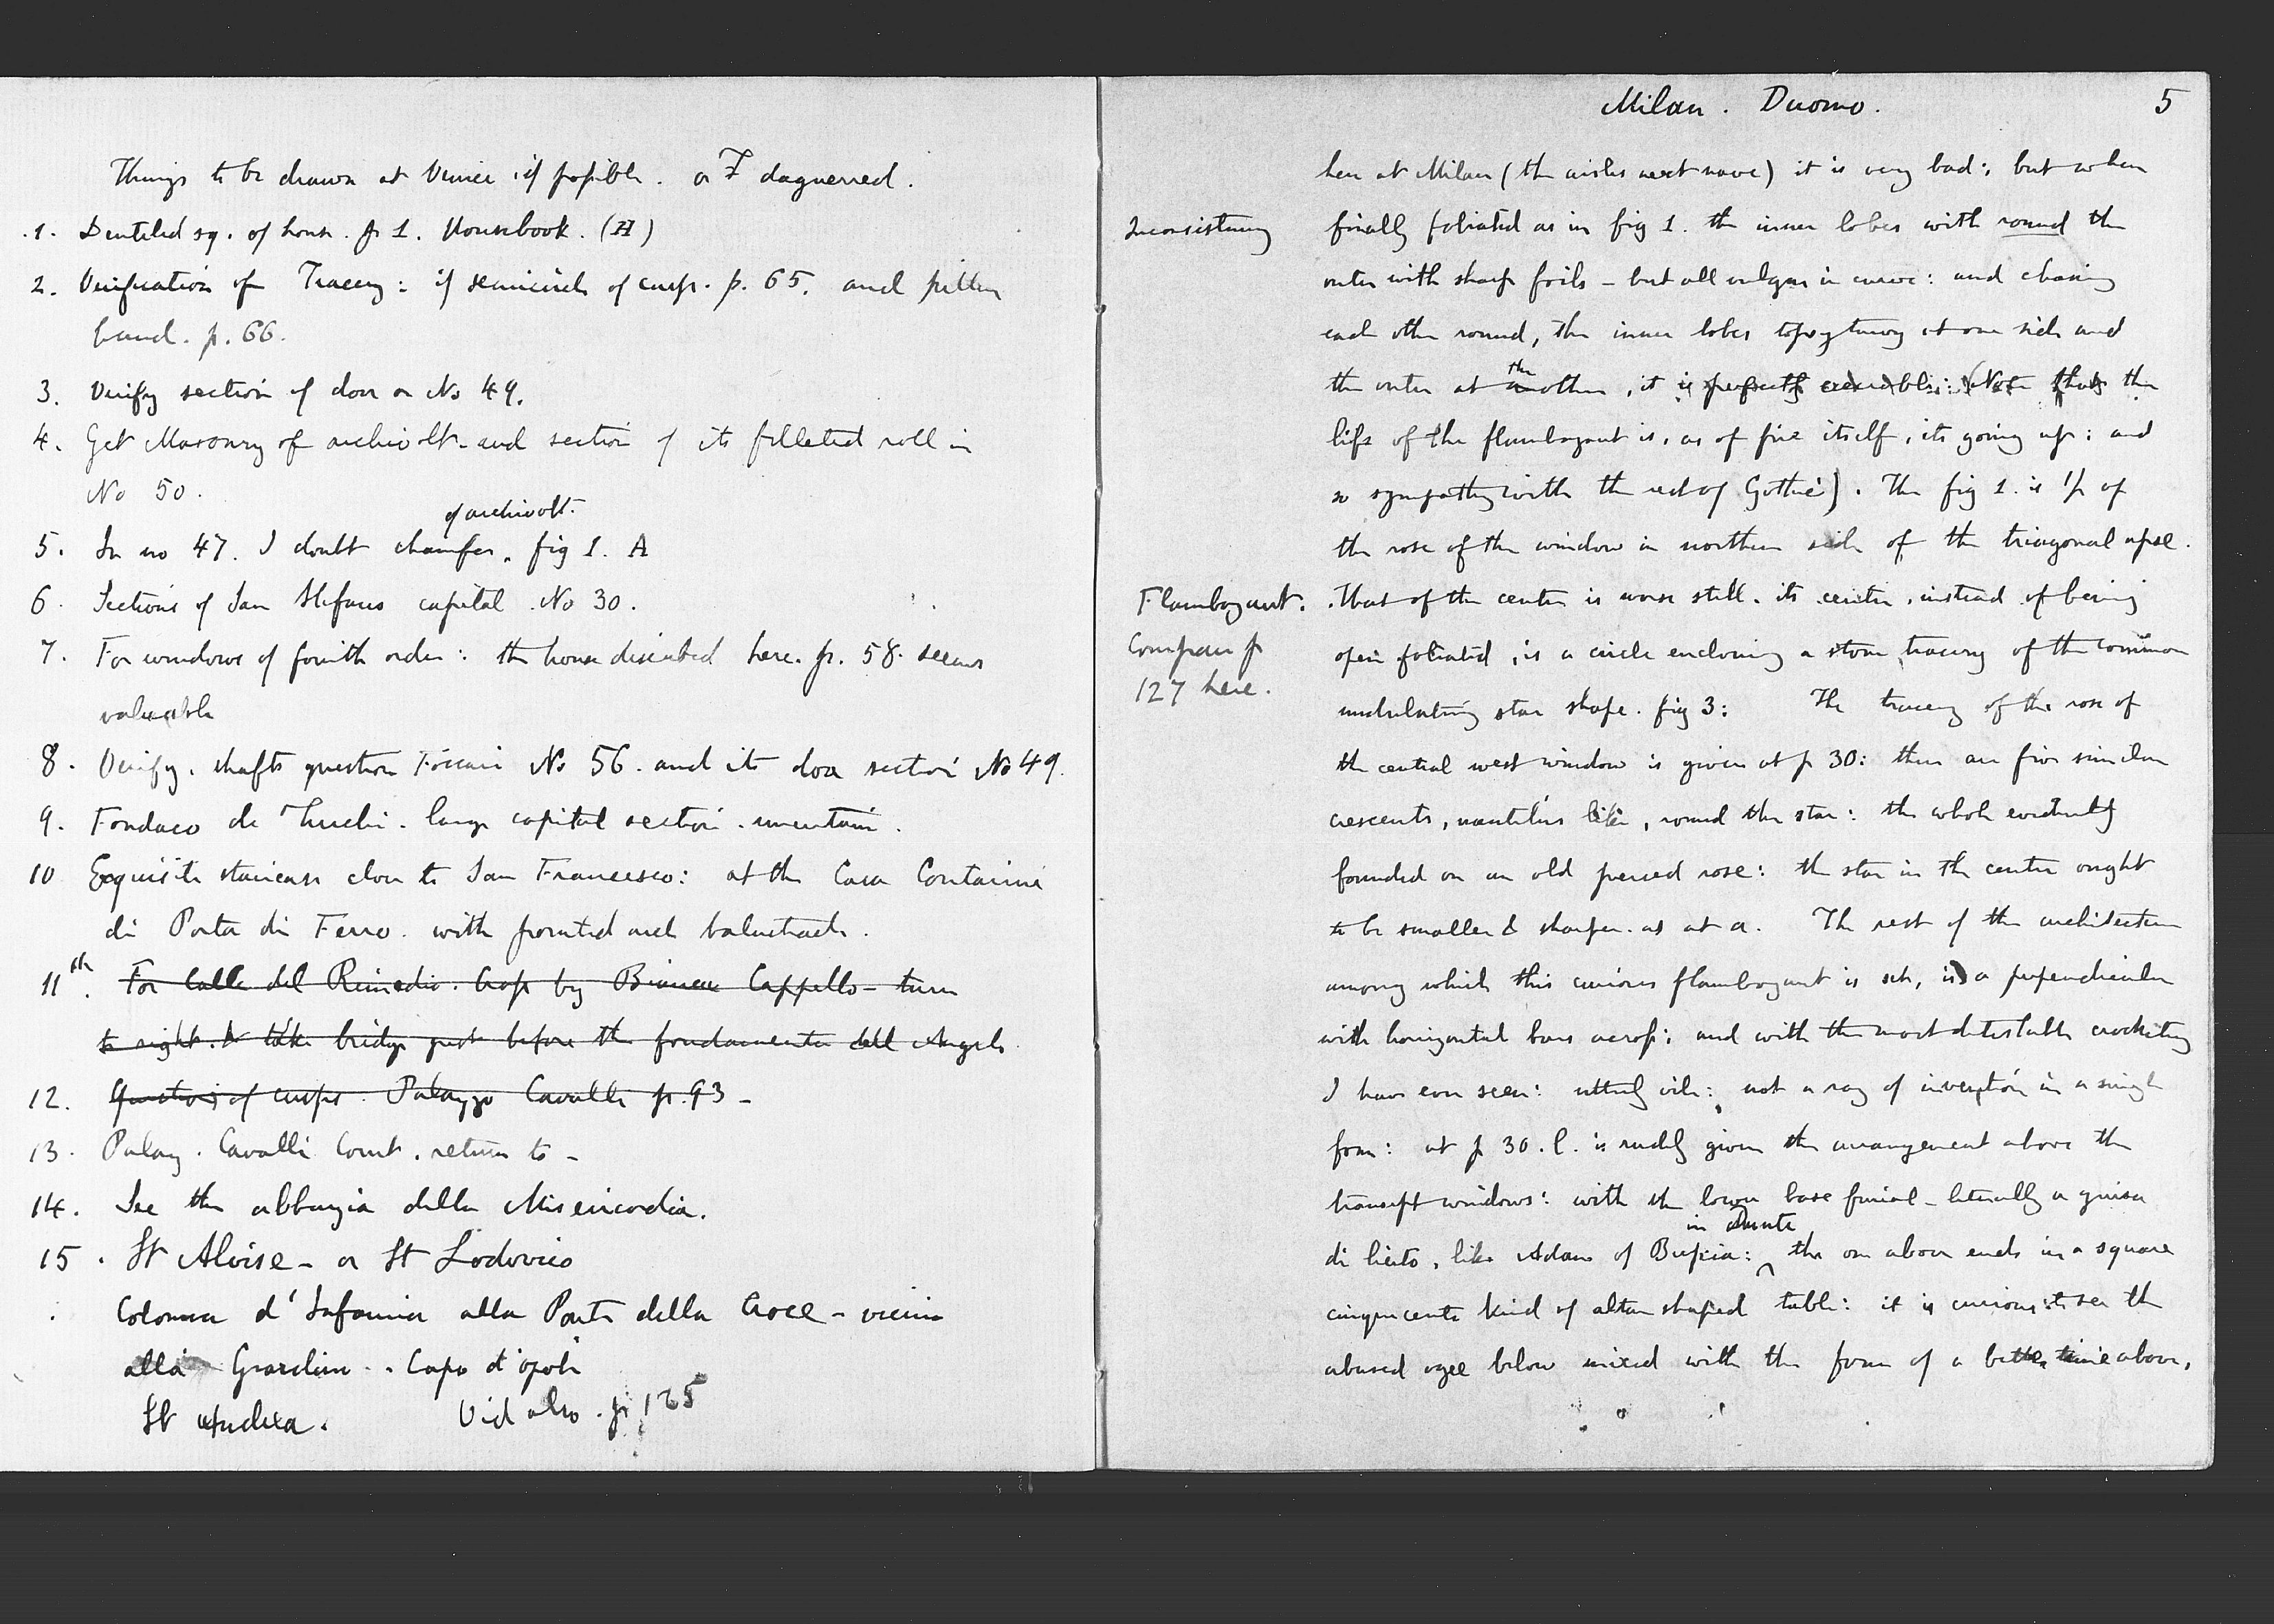 Things to be drawn at Venice if possible. or daguerred.
1. Dentiled sq. of house. p 1. Housebook. (H)
2. Verification of Tracery: if semicircle of cusp. p. 65. and
band. p. 66.
3. Verify section of door or No 49.
4. Get Masonry of archivolt and section of its filleted roll in
No 50.
of archivolt.
5. In no 47. I doubt chamfer. fig 1. A
6. Sections of San Stefano capital. No 30.
7. For windows of fourth order: the house described here. p. 58. seems
valuable
8. Verify. shafts question Foscari No 56. and its door section No 49.
9. Fondaco de Turchi. large capital section. uncertain.
10 Exquisite staircase close to San Francesco: at the Casa Contarini
di Porta di Ferro. with pointed arch balustrade.
11th. For Calle del Rimedio. Cross by Bianca Cappello - turn
to right. & take bridge just before the fondamenta dell Angelo
12. Question of cusps. Palazzo Cavalli p. 93 -
13. Palaz. Cavalli Court. return to -
14. See the abbazia della Misericordia.
15. St Aloise - or St Lodovico
Colonna d'Infamia alla Ponte della Croce - vicino
alla Giardini. Capo d'opoli
St Andrea. Vid also. p. 125
Milan. Duomo. 5
here at Milan (the aisles next nave) it is very bad; but when
Inconsistency
finally foliated as in fig 1. the inner lobes with round the
outer with sharp foils - but all vulgar in curve: and chasing
each other round, the inner lobes topsyturvy at one side and
the
the outer at another, it is perfectly execrable: (Note that the
life of the flamboyant is, as of fire itself, its going up: and
so sympathy with the rest of Gothic). The fig 1. is 1/2 of
the rose of the window in northern side of the triagonal apse.
Flamboyant.
Compare p
127 here.
That of the center is worse still. its center, instead of being
open foliated, is a circle enclosing a stone tracery of the common
undulating star shape. fig 3: The tracery of the rose of
the central west window is given at p 30: there are five similar
crescents, nautilus like, round the star: the whole evidently
founded on an old pierced rose: the star in the center ought
to be smaller & sharper. as at a. The rest of the architecture
among which this curious flamboyant is set, is a perpendicular
with horizontal bars across: and with the most detestable crocketing
I have ever seen: utterly vile: not a ray of invention in a single
form: at p 30. l. is rudely given the arrangement above the
transept windows: with the lower base finial - literally a guisa
in Dante
di lieto, like Adam of Brescia: the one above ends in a square
cinquecento kind of altar shaped table: it is curious to see the
abused ogee below mixed with the form of a better time above.